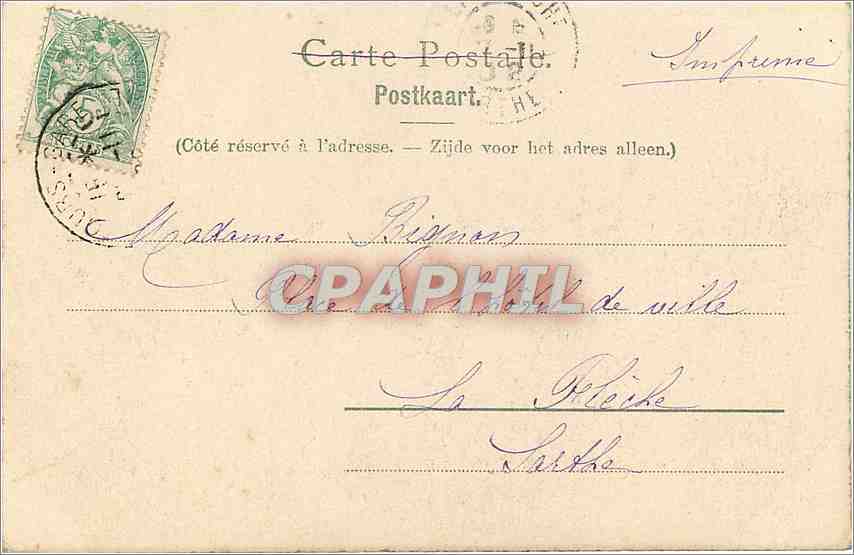 Carte Postale.
Imprimé
Postkaart.
(Côté réservé à l'adresse. — Zijde voor het adres alleen.)
Madame Bignon
CPAPHIL
Place de l'hôtel de ville
La Flèche
Sarthe